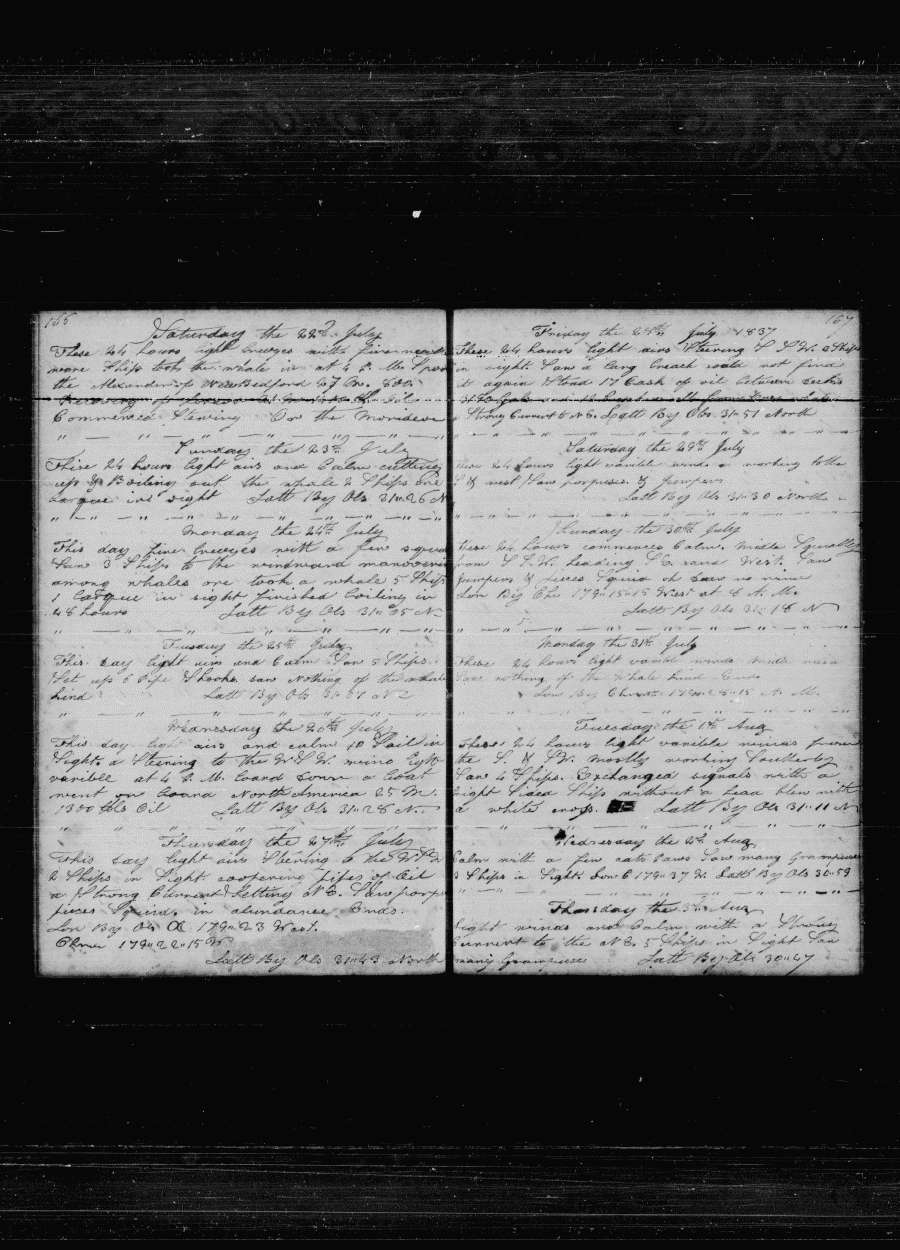 166
Saturday the 22nd July
These 24 hours light breezes with
more Ships took the whale in at 4 P. M. Spoke
the Alexander of New Bedford 27 Mo. 800
Commenced Steering On the
Sunday the 23rd July
These 24 hours light airs and Calm cutting
up & Boiling out the whale 2 Ships one
barque in sight Latt By Obs 31"26 N
Monday the 24th July
This day finer breezes with a few squalls
Saw 3 Ships to the windward manoovering
among whales one took a whale 5 Ships
1 barque in sight finished boiling in
48 hours Latt By Obs 31"05 N
Tuesday the 25th July
This day light airs and Calm Saw 5 Ships
Set up 6 Pipe Shooks saw nothing of the whale
kind Latt By Obs 31"37 N
Wednesday the 26th July
This day light airs and calm 10 Sail in
Sight a Steering to the W S W. wind light
varible at 4 P. M. lowerd down a boat
went on board North America 25 M.
1300 bbls Oil Latt By Obs 31"28 N
Thursday the 27th July
This day light airs Steering to the
2 Ships in Sight coopering pipes of Oil
a Strong Current Setting N E. Saw porp
pieces Squid in abundance Ends.
Lon By Ob 179"23 West.
Chron 179"22"15 W
Latt By Obs 31"43 North
167
Friday the 28th July 1837
These 24 hours light airs Steering S S W. 2 Ships
in sight. Saw a larg breach could not find
it again Stoed 17 Cask of oil between decks
a Strong Current to N E. Latt By Obs 31"51 North
Saturday the 29th July
These 24 hours light varible winds a working to the
S & west Saw porpuses & jumpers
Latt By Obs 31"30 North
Sunday the 30th July
These 24 hours commences Calm. Middle Squally
from S S W. Heading S E. and West. Saw
jumpers & pieces Squid
Lon By Chr 179"15"15 West at 8 A. M.
Latt By Obs 31"18 N
Monday the 31st July
These 24 hours light varible winds
Saw nothing of the Whale kind Ends
Lon By Chron 179"28"15 A. M.
Tuesday the 1st Aug
These 24 hours light varible winds from
the S. & SW. mostly working Southerly
Saw 4 Ships. Exchanged signals with a
bright Sided Ship without a head blew with
a white Latt By Obs 31"11 N
Wednesday the 2nd Aug
Calm with a few cats paws Saw many Grampuses
3 Ships in Sight. Lon C 179"37 W. Latt By Obs 30"59
Thursday the 3rd Aug
Light winds and Calm with a Strong
Current to the N E. 5 Ships in Sight Saw
many Grampuses Latt By Obs 30"47